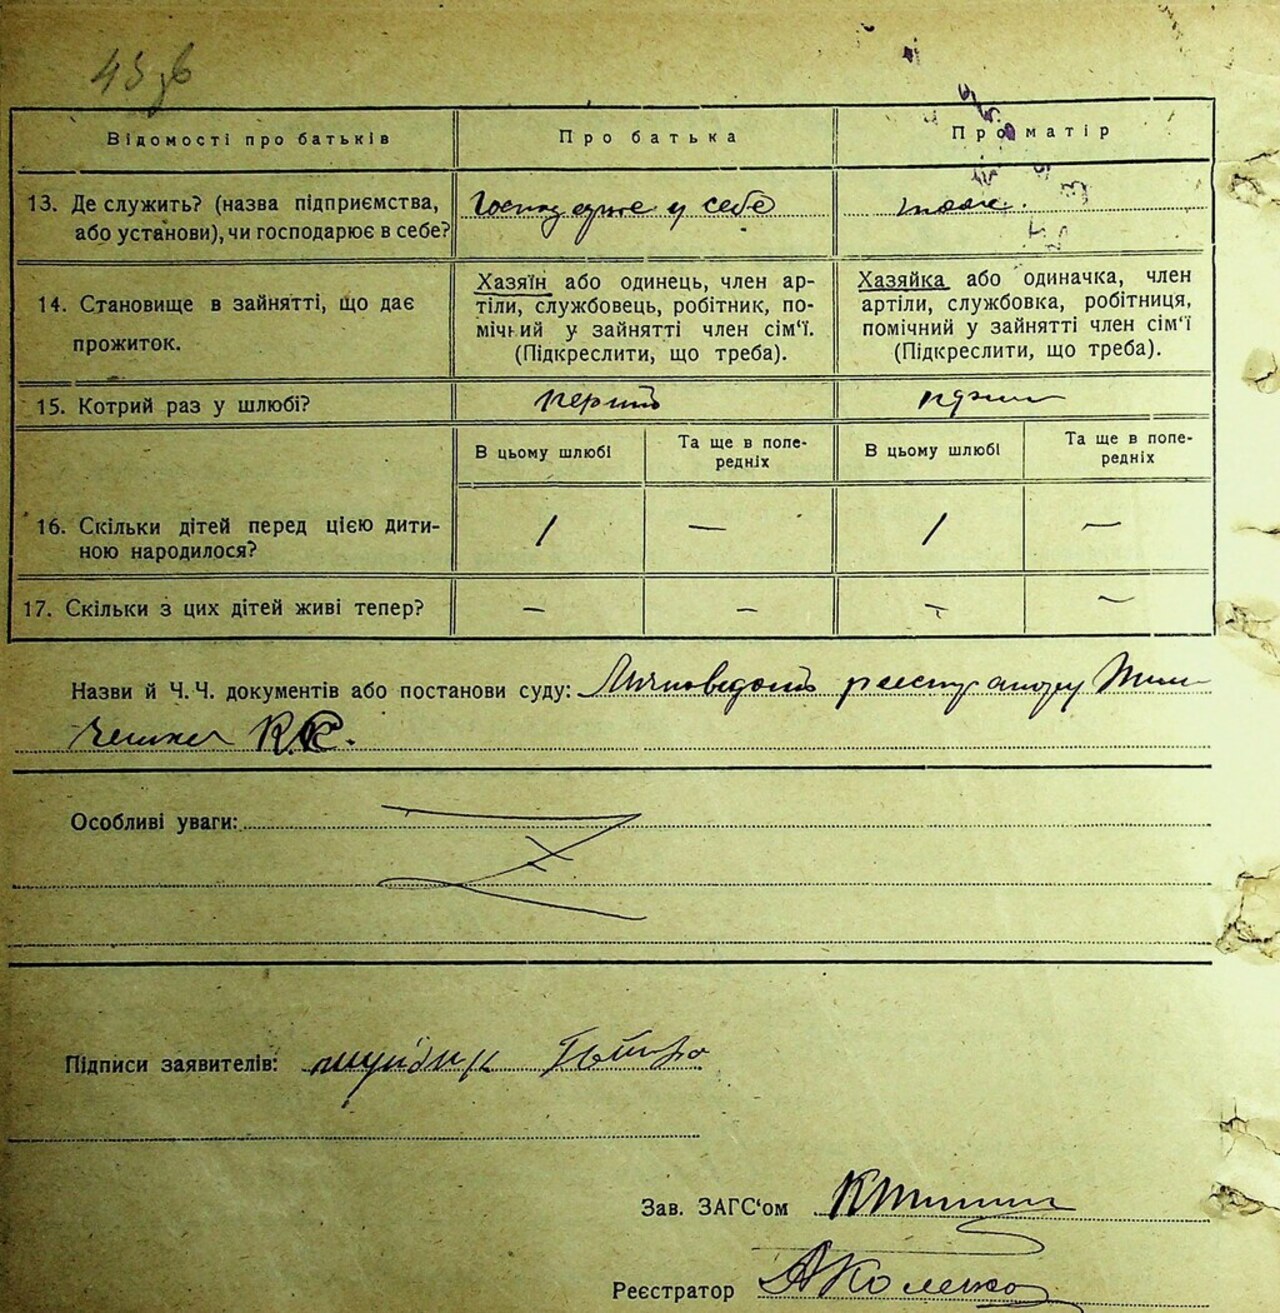 43 зв
Відомості про батьків
Про батька
Про матір
13. Де служить? (назва підприємства,
або установи), чи господарює в себе?
у себе
14. Становище в зайнятті, що дає
прожиток.
Хазяїн або одинець, член ар-
тіли, службовець, робітник, по-
мічний у зайнятті член сім‘ї.
(Підкреслити, що треба).
Хазяйка або одиначка, член
артіли, службовка, робітниця,
помічний у зайнятті член сім‘ї
(Підкреслити, що треба).
15. Котрий раз у шлюбі?
перший
В цьому шлюбі
Та ще в попе-
редніх
В цьому шлюбі
Та ще в попе-
редніх
16. Скільки дітей перед цією дити-
ною народилося?
/ — / —
17. Скільки з цих дітей живі тепер?
— — — —
Назви й Ч. Ч. документів або постанови суду:
Особливі уваги:
Підписи заявителів:
Зав. ЗАГС‘ом
Реєстратор